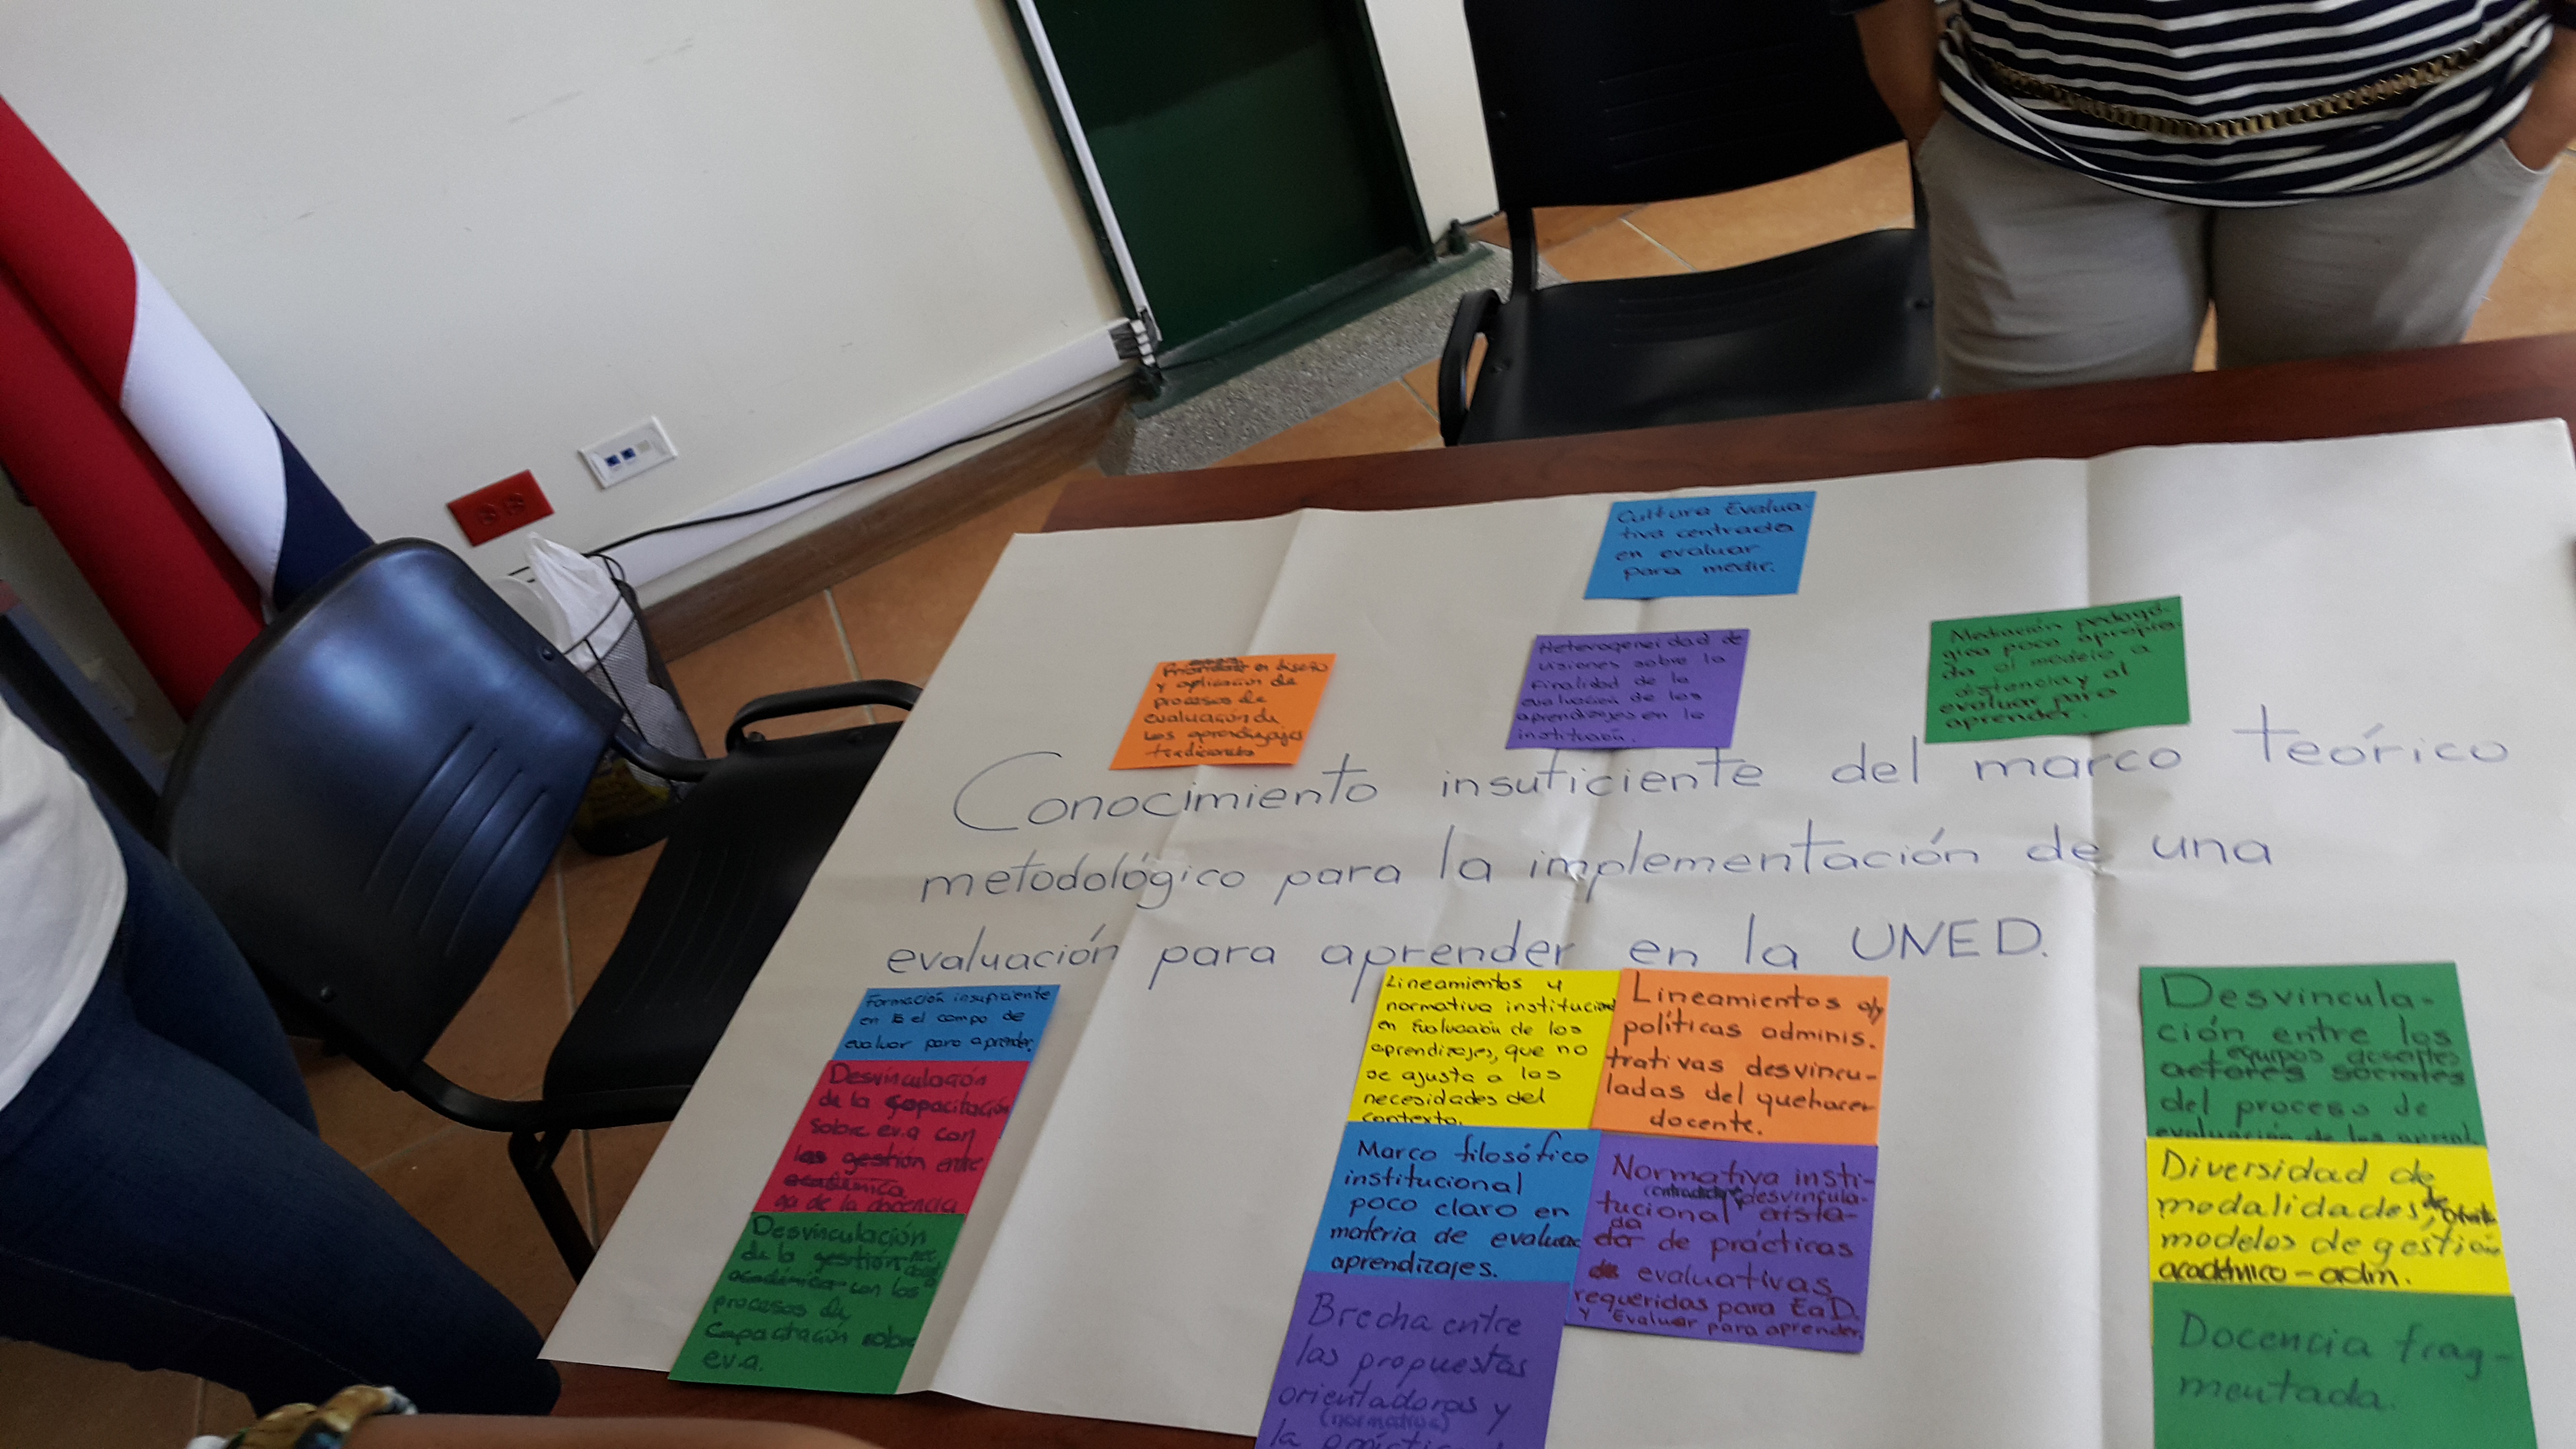 Cultura Evalua-
tiva centrada
en evaluar
para medir.
en diseño
y aplicación de
procesos de
evaluación de
los aprendizajes
tradicionales
Heterogeneidad de
visiones sobre la
finalidad de la
evaluación de los
aprendizajes en la
institución.
Mediación pedagó-
gica poco apropia-
da al modelo a
distancia y al
evaluar para
aprender.
Conocimiento insuficiente del marco teórico
metodológico para la implementación de una
evaluación para aprender en la UNED.
Formación insuficiente
en el campo de
evaluar para aprender.
Desvinculación
de la capacitación
sobre ev.a con
las gestión entre
académica
de la docencia
Desvinculación
de la gestión
académica con los
procesos de
capacitación sobre
ev.a.
Lineamientos y
normativa institucional
en Evaluación de los
aprendizajes, que no
se ajusta a las
necesidades del
contexto.
Lineamientos o/y
políticas adminis.
trativas desvincu-
ladas del quehacer
docente.
Marco filosófico
institucional
poco claro en
materia de evaluac
aprendizajes.
Normativa insti-
desvincula-
tucional aisla-
da
da de prácticas
de evaluativas
requeridas para EaD.
y Evaluar para aprender.
Brecha entre
las propuestas
orientadoras y
(normativa)
la
Desvincula-
ción entre los
equipos docentes
actores sociales
del proceso de
evaluación de los
Diversidad de
modalidades, de
modelos de gestión
académico-adm.
Docencia frag-
mentada.